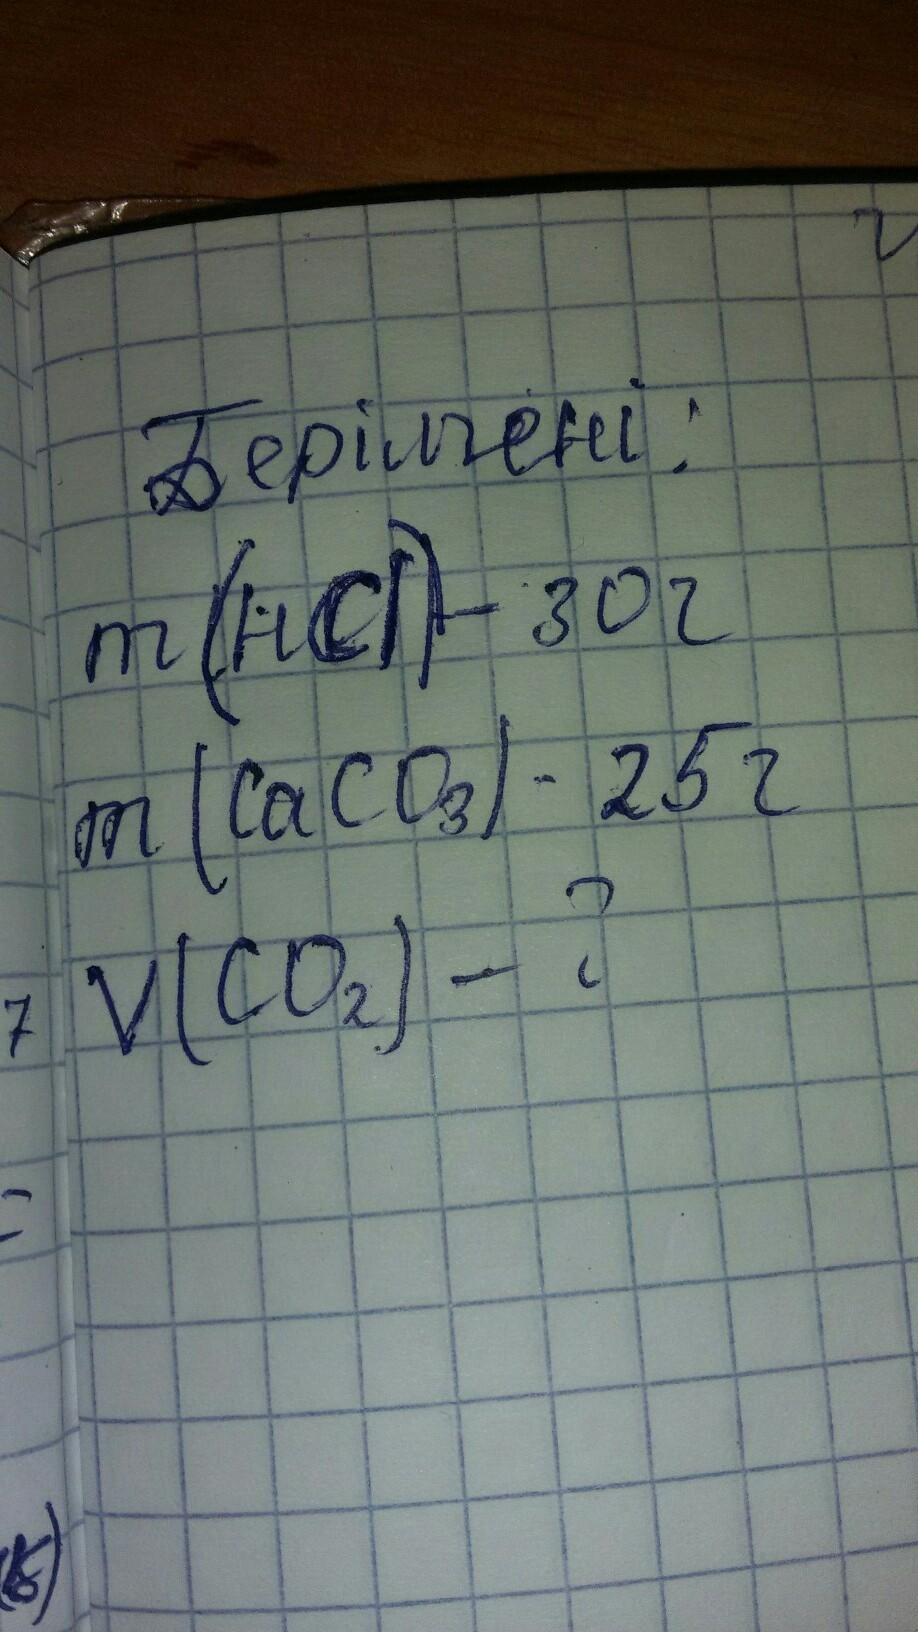 Берілгені:
m(HCl) - 30г
m(CaCO₃) - 25г
V(CO₂) - ?
7